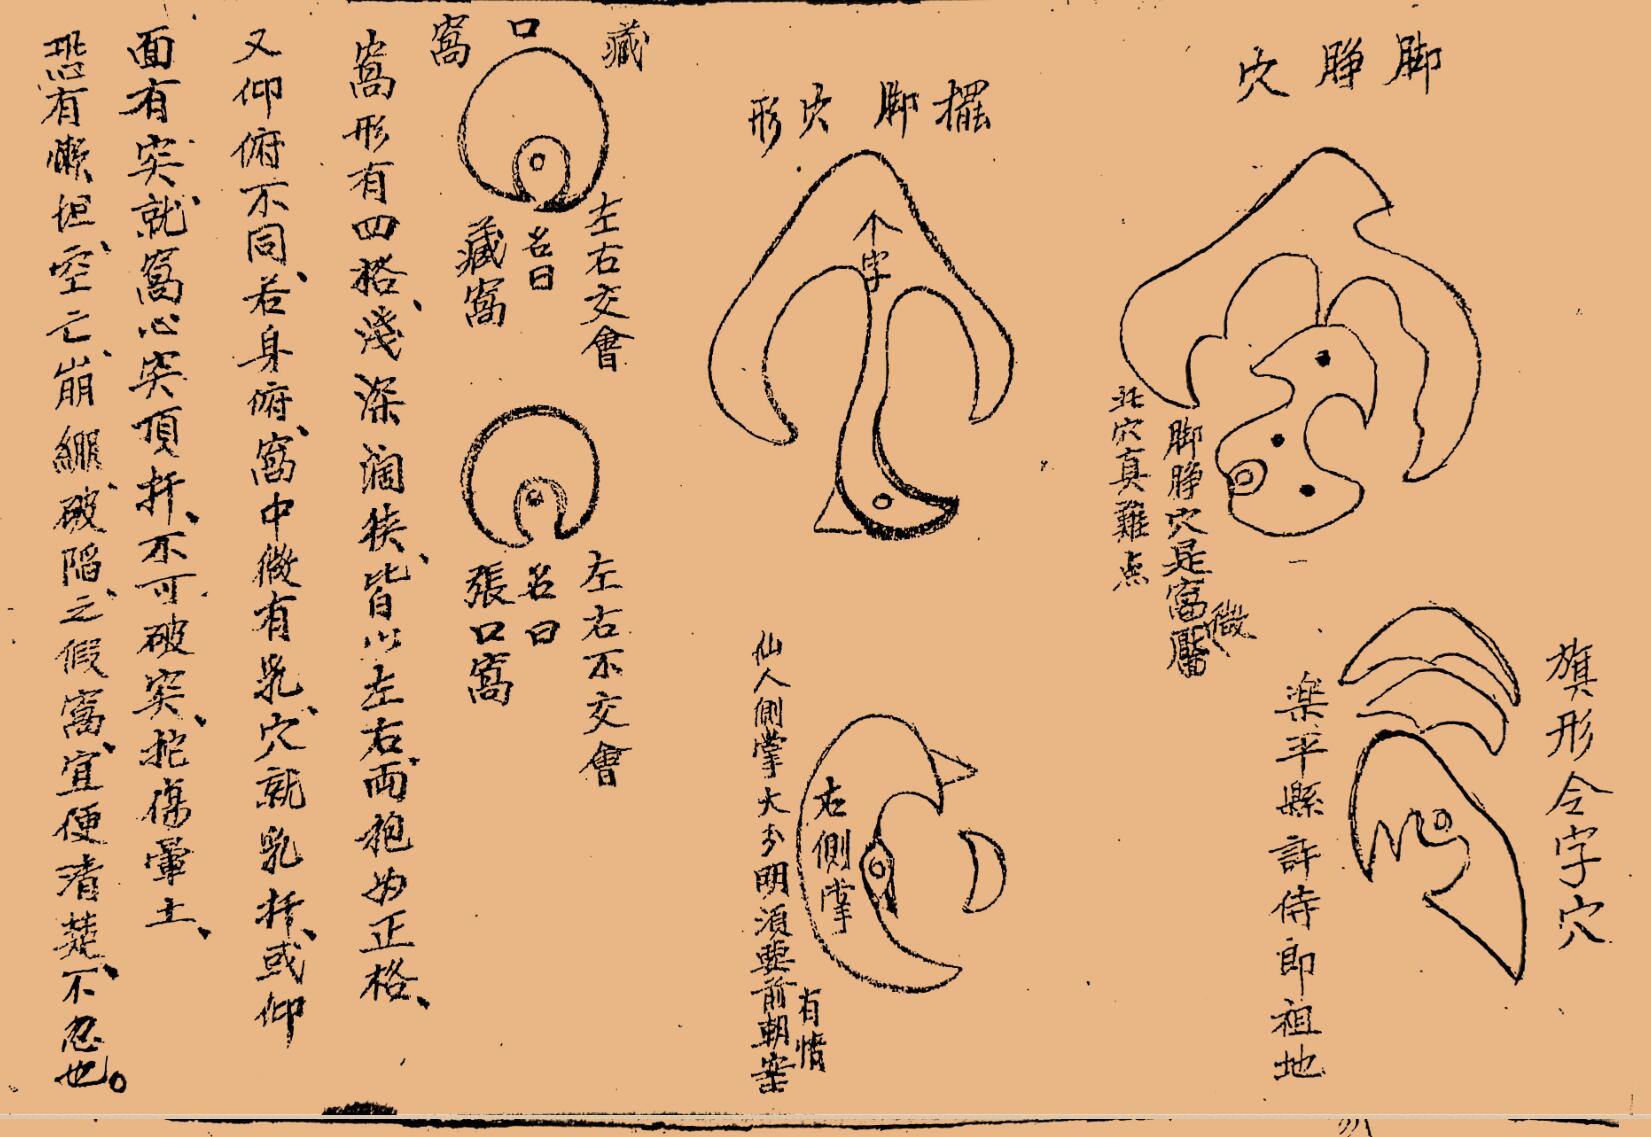 脚睜穴
脚睜穴是窩靨微
此穴真難点
旗形令字穴
楽平縣許侍郎祖地
擺脚穴形
个字
右側掌
仙人側掌大多明須要前朝案
有情
藏口窩
左右交會
名曰
藏窩
左右不交會
名曰
張口窩
窩形有四格、淺深濶狹、皆以左右両抱為正格、
又仰俯不同、若身俯、窩中微有乳、穴就乳扦、或仰
面有突、就窩心突頂扦、不可破突、挖傷暈土、
恐有懶坦、空亡、崩綳破陷、之假窩、宜便清楚、不忽也。